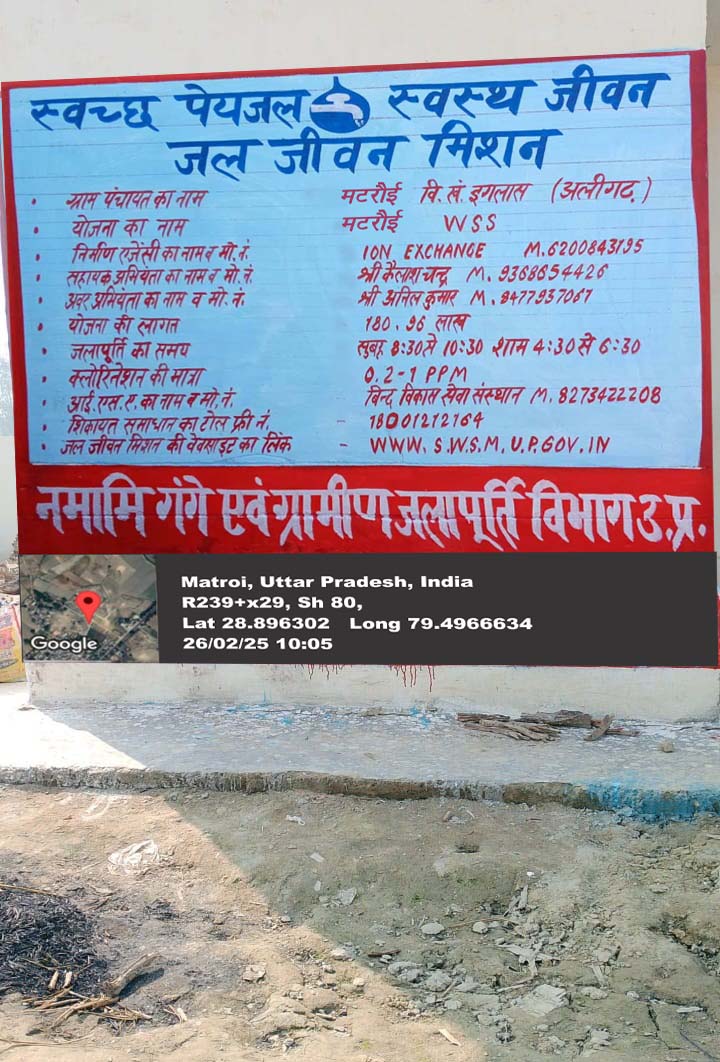 स्वच्छ पेयजल स्वस्थ जीवन
जल जीवन मिशन
• ग्राम पंचायत का नाम मटरौई वि.खं. इगलास (अलीगढ़)
• योजना का नाम मटरौई WSS
• निर्माण एजेंसी का नाम व मो.नं. ION EXCHANGE M.6200843195
• सहायक अभियंता का नाम व मो.नं. श्री कैलाश चन्द्र M. 9368654426
• अवर अभियंता का नाम व मो.नं. श्री अनिल कुमार M. 8477937067
• योजना की लागत 180.96 लाख
• जलापूर्ति का समय सुबह 8:30 से 10:30 शाम 4:30 से 6:30
• क्लोरिनेशन की मात्रा 0.2-1 PPM
• आई.एस.ए. का नाम व मो.नं. विन्द विकास सेवा संस्थान M. 8273422208
• शिकायत समाधान का टोल फ्री नं. - 18001212164
• जल जीवन मिशन की वेबसाइट का लिंक - WWW.S.WSM.UP.GOV.IN
नमामि गंगे एवं ग्रामीण जलापूर्ति विभाग उ.प्र.
Matroi, Uttar Pradesh, India
R239+x29, Sh 80,
Lat 28.896302 Long 79.4966634
26/02/25 10:05
Google